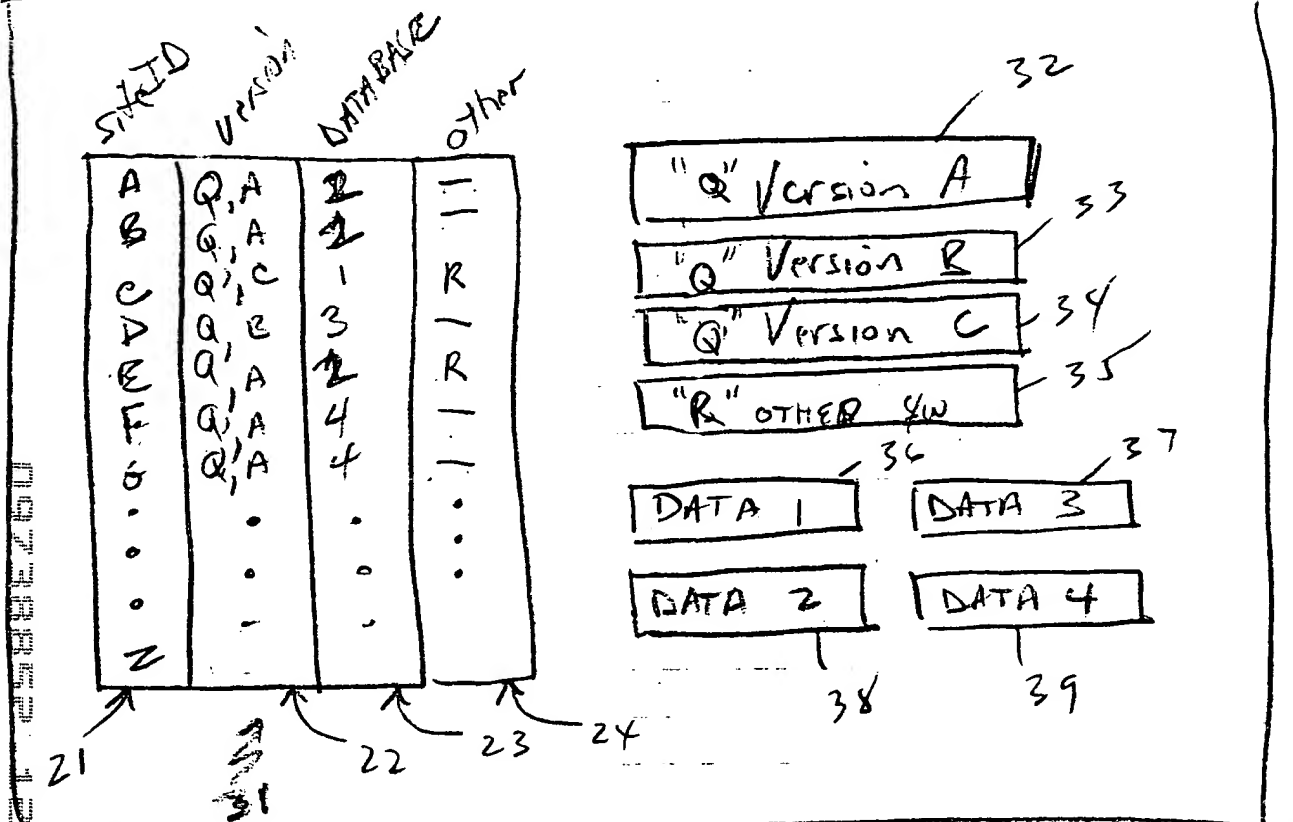 SiteID Version DATABASE Other
A Q,A 2 —
B Q,A 2 —
C Q',C 1 R
D Q,B 3 —
E Q',A 2 R
F Q',A 4 —
G Q',A 4 —
Z
21 22 23 24
31
32
"Q" Version A
33
"Q" Version B
34
"Q" Version C
35
"R" OTHER S/W
36 37
DATA 1 DATA 3
DATA 2 DATA 4
38 39